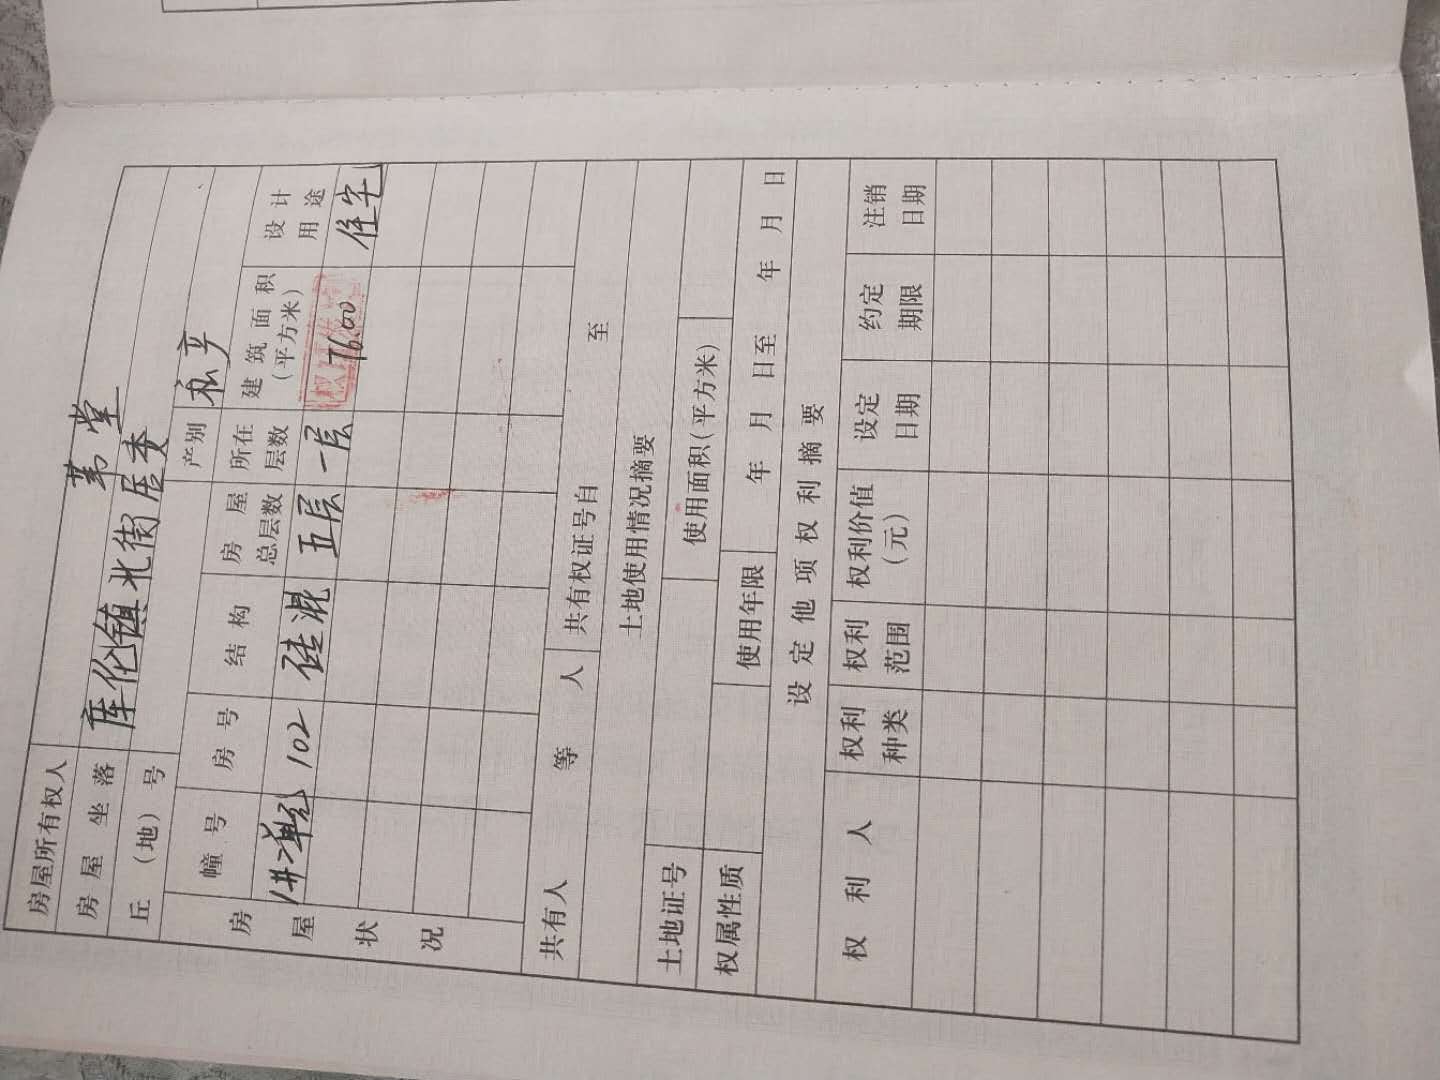 房屋所有权人 苐堂
房屋坐落 库伦镇北街居委
丘（地）号 产别 私产
房屋状况
幢号 房号 结构 房屋总层数 所在层数 建筑面积（平方米） 设计用途
1#2单元 102 砖混 五层 一层 76.00 住宅
共有人 等 人 共有权证号自 至
土地使用情况摘要
土地证号 使用面积(平方米)
权属性质 使用年限 年 月 日至 年 月 日
设定他项权利摘要
权利人 权利种类 权利范围 权利价值（元） 设定日期 约定期限 注销日期